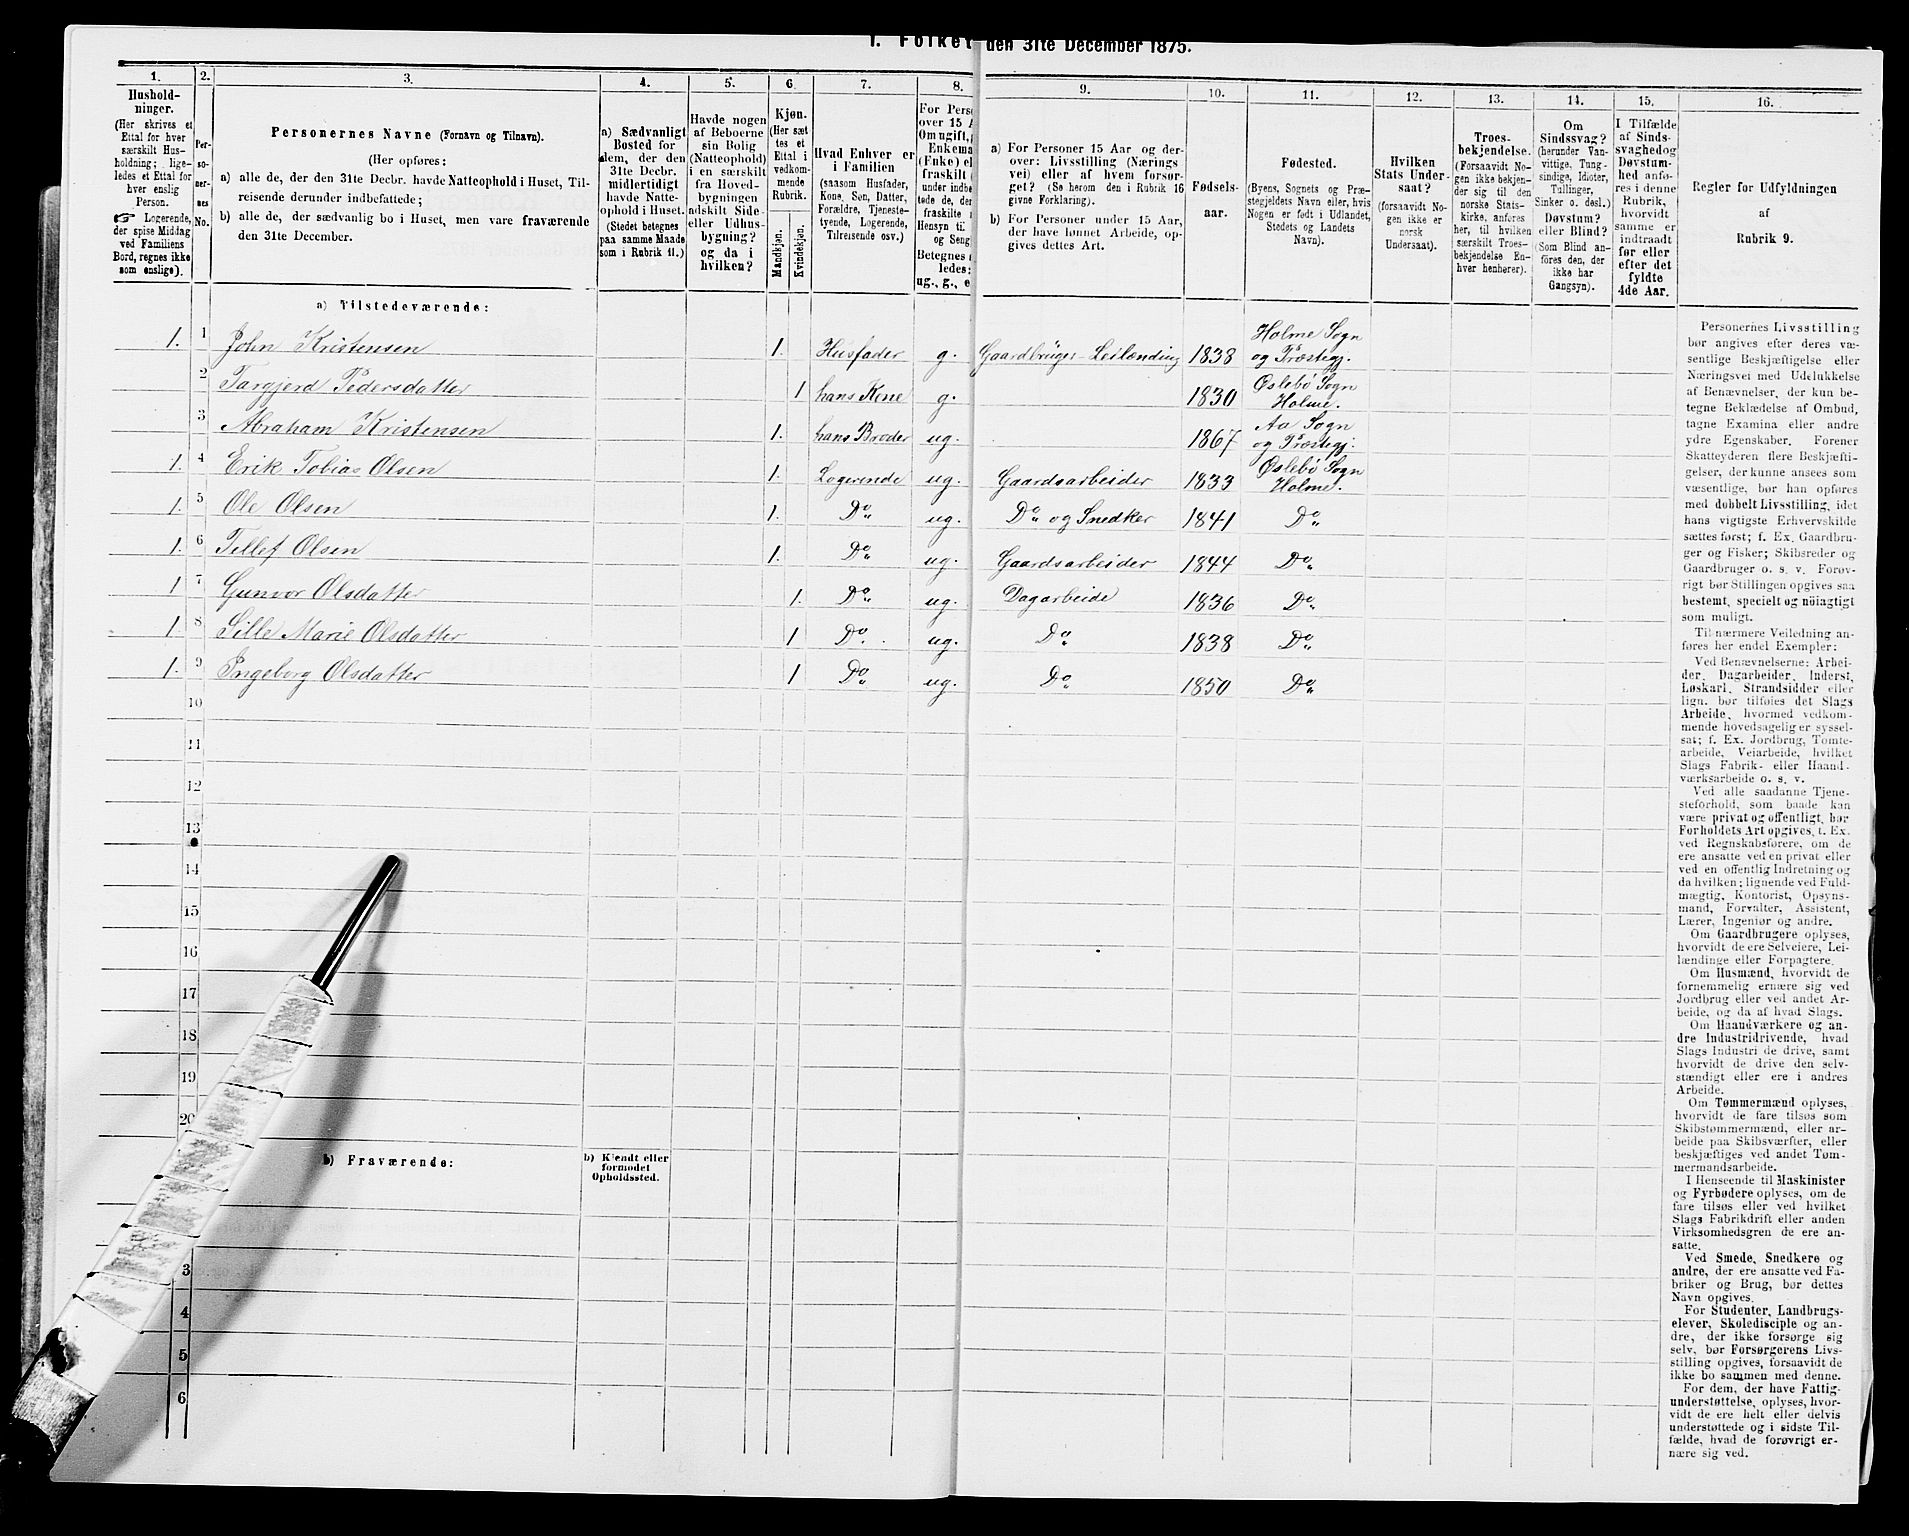 1. Folket den 31te December 1875.
1. 2. 3. 4. 5. 6. 7. 8. 9. 10. 11. 12. 13. 14. 15. 16.
Hushold-
ninger.
(Her skrives et
Ettal for hver
særskilt Hus-
holdning; lige-
ledes et Ettal for
hver enslig
Person.
☞ Logerende,
der spise Middag
ved Familiens
Bord, regnes ikke
som enslige).
Per-
so-
ner-
nes
No.
Personernes Navne (Fornavn og Tilnavn).
(Her opføres:
a) alle de, der den 31te Decbr. havde Natteophold i Huset, Til-
reisende derunder indbefattede;
b) alle de, der sædvanlig bo i Huset, men vare fraværende
den 31te December.
a) Sædvanligt
Bosted for
dem, der den
31te Decbr.
midlertidigt
havde Natte-
ophold i Huset.
(Stedet betegnes
paa samme Maade
som i Rubrik 11.)
Havde nogen
af Beboerne
sin Bolig
(Natteophold)
i en særskilt
fra Hoved-
bygningen
adskilt Side-
eller Udhus-
bygning?
og da i
hvilken?
Kjøn.
(Her sæt
tes et
Ettal i
vedkom-
mende
Rubrik.
Mandkjøn.
Kvindekjøn.
Hvad Enhver er
i Familien
(saasom Husfader,
Kone, Søn, Datter,
Forældre, Tjeneste-
tyende, Logerende,
Tilreisende osv.)
For Perso
over 15 A
Om ugift,
Enkema
(Fnke) el
fraskilt
under indbe
tede de, der
fraskilte
Hensyn til
og Seng
Betegnes
ledes:
ug., g., e
a) For Personer 15 Aar og der-
over: Livsstilling (Nærings
vei) eller af hvem forsør-
get? (Se herom den i Rubrik 16
givne Forklaring).
b) For Personer under 15 Aar,
der have lønnet Arbeide, op-
gives dettes Art.
Fødsels-
aar.
Fødested.
(Byens, Sognets og Præ-
stegjeldets Navn, eller hvis
Nogen er født i Udlandet,
Stedets og Landets
Navn).
Hvilken
Stats Under-
saat?
(forsaavidt No-
gen ikke er
norsk
Undersaat).
Troes-
bekjendelse.
(Forsaavidt No-
gen ikke bekjen-
der sig til den
norske Stats-
kirke, anføres
her, til hvilken
særskilt Troes-
bekjendelse En-
hver henhører).
Om
Sindssvag?
(herunder Van-
vittige, Tung-
sindige, Idioter,
Tullinger,
Sinker o. desl.)
Døvstum?
eller Blind?
(Som Blind an-
føres den, der
ikke har
Gangsyn).
I Tilfælde
af Sinds-
svaghed og
Døvstum-
hed anfø-
res i denne
Rubrik,
hvorvidt
samme er
indtraadt
før eller
efter det
fyldte
4de Aar.
Regler for Udfyldningen
af
Rubrik 9.
a) Tilstedeværende:
1. 1 John Kristensen 1. Husfader g. Gaardbruger-Leilænding 1838 Holme Sogn og Præstegj.
2 Targjerd Pedersdatter 1 hans Kone g. 1830 Øslebø Sogn Holme.
3 Abraham Kristensen 1. hans Broder ug. 1867 Aa Sogn og Præstegj.
1. 4 Erik Tobias Olsen 1. Logerende ug. Gaardsarbeider 1833 Øslebø Sogn Holme.
1. 5 Ole Olsen 1. Do ug. Do og Snedker 1841 Do
1. 6 Tellef Olsen 1. Do ug. Gaardsarbeider 1844 Do
1 7 Gunvor Olsdatter 1. Do ug. Dagarbeide 1836 Do
1 8 Sille Marie Olsdatter 1 Do. ug. Do 1838 Do
1. 9 Ingeborg Olsdatter 1 Do ug. Do 1850 Do
10
11
12
13
14
15
16
17
18
19
20
b) Fraværende:
b) Kjendt eller
formodet
Opholdssted.
3
4
5
6
Personernes Livsstilling
bør angives efter deres væ-
sentlige Beskjæftigelse eller
Næringsvei med Udelukkelse
af Benævnelser, der kun be-
tegne Beklædelse af Ombud,
tagne Examina eller andre
ydre Egenskaber. Forener
Skatteyderen flere Beskjæfti-
gelser, der kunne ansees som
væsentlige, bør han opføres
med dobbelt Livsstilling, idet
hans vigtigste Erhvervskilde
sættes først; f. Ex. Gaardbru-
ger og Fisker; Skibsreder og
Gaardbruger o. s. v. Forøv-
rigt bør Stillingen opgives saa
bestemt, specielt og nöiagtigt
som muligt.
Til nærmere Veiledning an-
føres her endel Exempler:
Ved Benævnelserne: Arbei-
der, Dagarbeider, Inderst,
Løskarl, Strandsidder eller
lign. bør tilføies det Slags
Arbeide, hvormed vedkom-
mende hovedsagelig er syssel-
sat; f. Ex. Jordbrug, Tomte-
arbeide, Veiarbeide, hvilket
Slags Fabrik- eller Haand-
værksarbeide o. s. v.
Ved alle saadanne Tjene-
steforhold, som baade kan
være privat og offentligt, bør
Forholdets Art opgives, t. Ex.
ved Regnskabsførere, om de
ere ansatte ved en privat eller
ved en offentlig Indretning og
da hvilken; lignende ved Fuld-
mægtig, Kontorist, Opsyns-
mand, Forvalter, Assistent,
Lærer, Ingeniør og andre.
Om Gaardbrugere oplyses,
hvorvidt de ere Selveiere, Lei-
lændinge eller Forpagtere.
Om Husmænd, hvorvidt de
fornemmelig ernære sig ved
Jordbrug eller ved andet Ar-
beide, og da af hvad Slags.
Om Haandværkere og an-
dre Industridrivende, hvad
Slags Industri de drive, samt
hvorvidt de drive den selv-
stændigt eller ere i andres
Arbeide.
Om Tømmermænd oplyses,
hvorvidt de fare tilsøs som
Skibstømmermænd, eller ar-
beide paa Skibsværfter, eller
beskjæftiges ved andet Tøm-
mermandsarbeide.
I Henseende til Maskinister
og Fyrbødere oplyses, om de
fare tilsøs eller ved hvilket
Slags Fabrikdrift eller anden
Virksomhedsgren de ere an-
satte.
Ved Smede, Snedkere og
andre, der ere ansatte ved Fa-
briker og Brug, bør dettes
Navn opgives.
For Studenter, Landbrugs-
elever, Skoledisciple og an-
dre, der ikke forsørge sig
selv, bør Forsørgerens Livs-
stilling opgives, forsaavidt de
ikke bo sammen med denne.
For dem, der have Fattig-
understøttelse, oplyses, hvor-
vidt de ere helt eller delvis
understøttede og i sidste Til-
fælde, hvad de forøvrigt er-
nære sig ved.